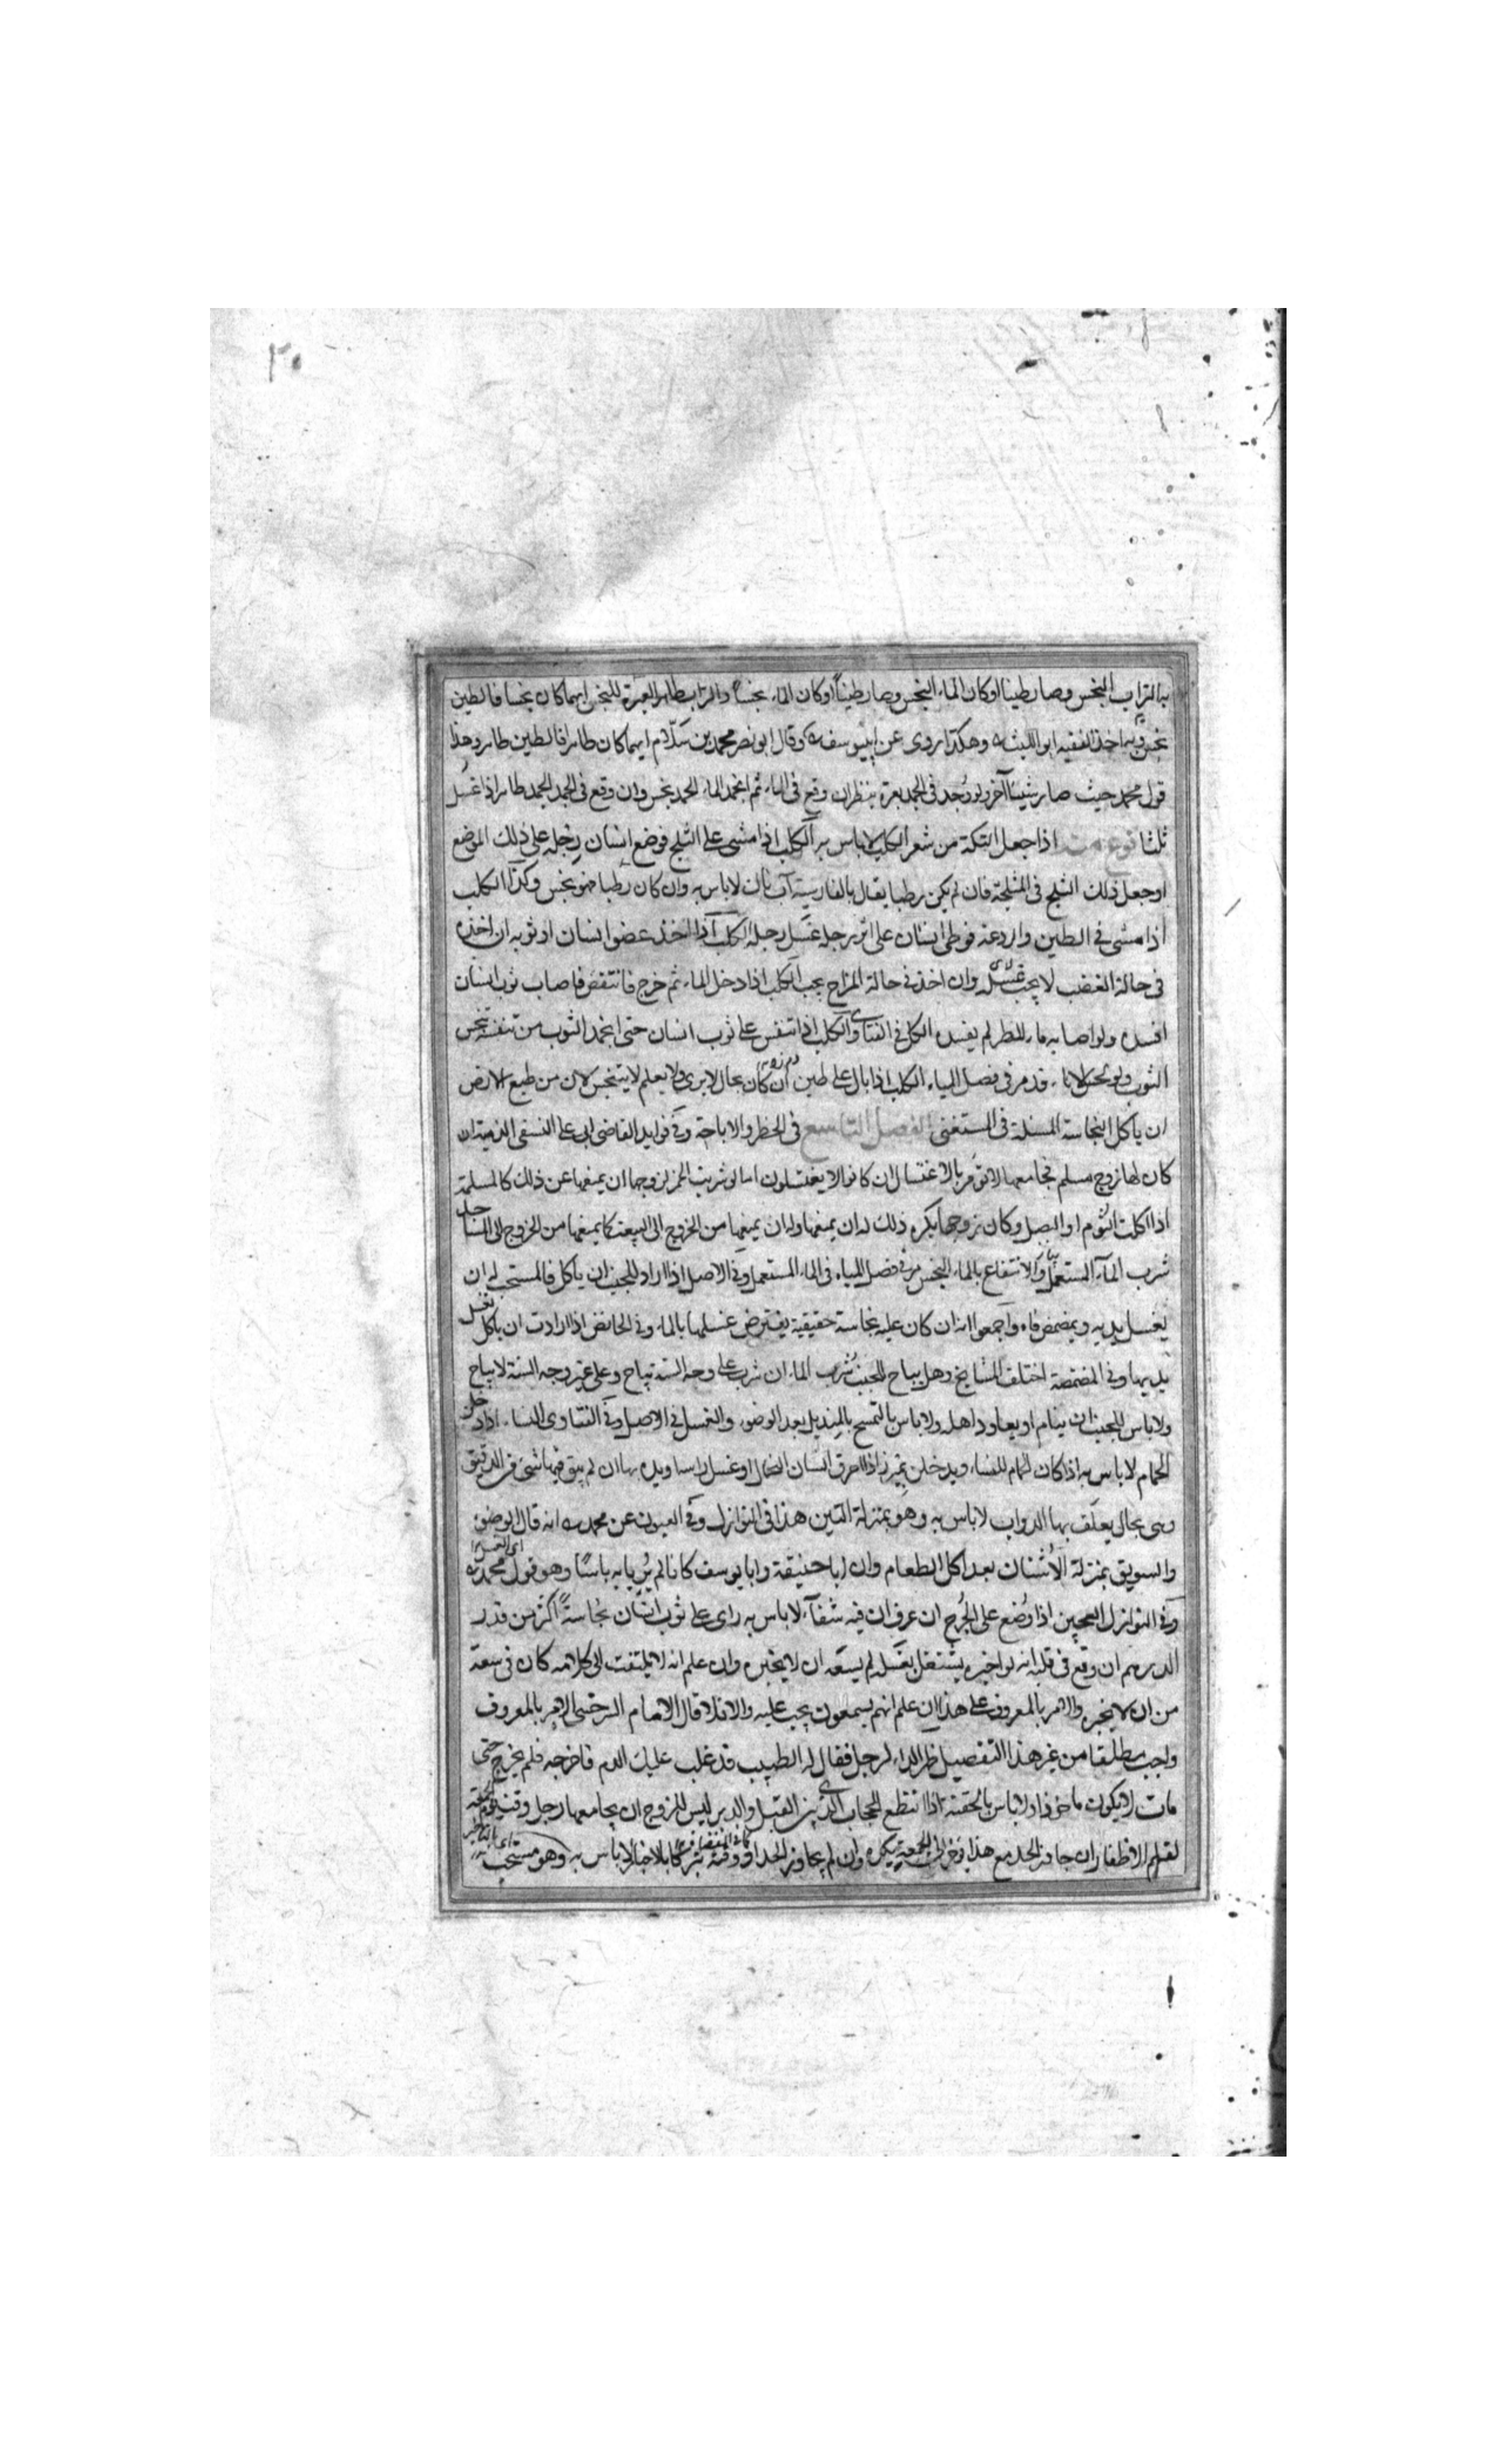 ٢٥
بالتراب النجس وصار طينا او كان الماء النجس وصار طيناً او كان الماء نجسا والتراب طاهر العبرة للنجس ايهما كان نجسا فالطين
نجس وبه اخذ الفقيه ابو الليث وهكذا روى عن ابيوسف وقال ابو نصر محمد بن سلّام ايهما كان طاهرا فالطين طاهر وهذا
قول محمد حيث صار شيئا آخر ولو وُجد فى الجمد بعرة ينظر ان وقع فى الماء ثم انجمد الماء الجمد نجس وان وقع فى الجمد الجمد طاهر اذا غسل
ثلثا نوع منه اذا جعل التكة من شعر الكلب لا باس به الكلب اذا مشى على الثلج فوضع انسان رجله على ذلك الموضع
او جعل ذلك الثلج فى المثلجة فان لم يكن رطبا يقال بالفارسية آب ناك لا باس به وان كان رطبا فهو نجس وكذا الكلب
اذا مشى فى الطين واردغة فوطئ انسان على اثر رجله غسل رجله الكلب اذا اخذ عضو انسان او ثوبه ان اخذه
فى حالة الغضب لا يجب غسله وان اخذ فى حالة المزاح يجب الكلب اذا دخل الماء ثم خرج فانتفض فاصاب ثوب انسان
افسده ولو اصابه ماء المطر لم يفسد الكل فى الفتاوى الكلب اذا تنفس على ثوب انسان حتى انجمد الثوب من تنفسه تنجس
الثوب ولو لحس الاناء قد مر فى فصل المياه الكلب اذا بال على طين ان كان بحال لا يرى ولا يعلم لا يتنجس لان من طبع الارض
ان ياكل النجاسة المسئلة فى المستغنى الفصل التاسع فى الحظر والاباحة وفى فوايد القاضى ابى على النسفى الذمية ان
كان لها زوج مسلم فجامعها لا تؤمر بالاغتسال ان كانوا لا يغتسلون اما لو شربت الخمر لزوجها ان يمنعها عن ذلك كالمسلمة
اذا اكلت الثوم او البصل وكان زوجها يكره ذلك له ان يمنعها وله ان يمنعها من الخروج الى البيعة كما يمنعها من الخروج الى النساء
شرب الماء المستعمل والانتفاع بالماء النجس مر فى فصل المياه فى الماء المستعمل وفى الاصل اذا اراد الجنب ان ياكل فالمستحب له ان
يغسل يديه ويمضمض فاه واجمعوا انه ان كان عليه نجاسة حقيقية يفترض غسلها بالماء وفى الحائض اذا ارادت ان ياكل تغسل
يديها وفى المضمضة اختلف المشايخ وهل يباح للجنب شرب الماء ان شرب على وجه السنة يباح وعلى غير وجه السنة لا يباح
ولا باس للجنب ان ينام او يعاود اهله ولا باس بالتمسح بالمنديل بعد الوضوء والغسل فى الاصل وفى الفتاوى النساء اذا دخلن
الحمام لا باس به اذا كان الحمام للنساء ويدخلن بميزر اذا احرق انسان النخال او غسل راسه او يده بها ان لم يبق فيها شئ من الدقيق
وهى بحال يعلف بها الدواب لا باس به وهو بمنزلة التبن هذا فى النوازل وفى العيون عن محمد انه قال الوضوء
والسويق بمنزلة الاُشنان بعد اكل الطعام وان ابا حنيفة وابا يوسف كانا لم يريا به باسًا وهو قول محمد
وفى النوازل العجين اذا وُضع على الجُرح ان عرف ان فيه شفاء لا باس به راى على ثوب انسان نجاسة اكثر من قدر
الدرهم ان وقع فى قلبه انه لو اخبره يشتغل بغسله لم يسعه ان لا يخبره وان علم انه لا يلتفت الى كلامه كان فى سعة
من ان لا يخبره والامر بالمعروف على هذا ان علم انهم يسمعون يجب عليه والا فلا قال الامام السرخسى الامر بالمعروف
واجب مطلقا من غير هذا التفصيل ظهر الداء لرجل فقال له الطبيب قد غلب عليك الدم فاخرجه فلم يخرج حتى
مات لا يكون ماخوذا ولا باس بالحقنة اذا انقطع الحجاب الذى بين القبل والدبر ليس للزوج ان يجامعها رجل وقت يوم الجمعة
لقلم الاظفار ان جاوز الحد مع هذا اخر الى الجمعة يكره وان لم يجاوز الحد او وقته تبركا بالاخبار لا باس به وهو مستحب